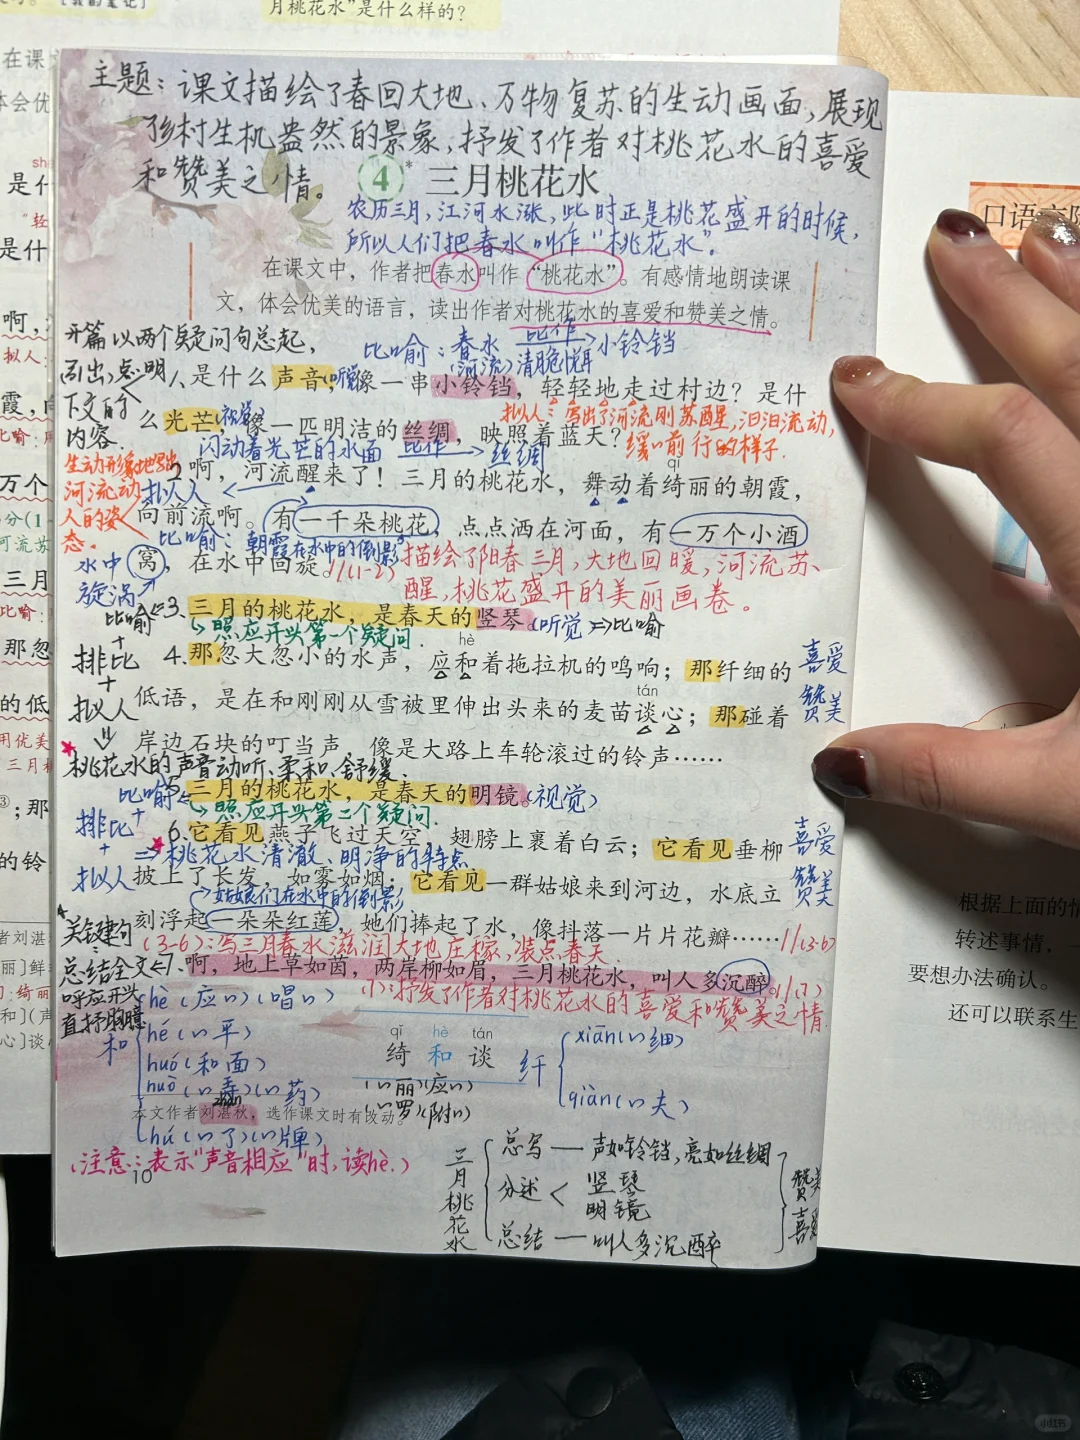 月桃花水”是什么样的？
主题：课文描绘了春回大地、万物复苏的生动画面，展现
乡村生机盎然的景象，抒发了作者对桃花水的喜爱
和赞美之情。
4* 三月桃花水
农历三月，江河水涨，此时正是桃花盛开的时候，
所以人们把春水叫作“桃花水”。
在课文中，作者把春水叫作“桃花水”。有感情地朗读课
文，体会优美的语言，读出作者对桃花水的喜爱和赞美之情。
开篇以两个疑问句总起，
引出，点明
下文的
内容.
比喻：春水 比作 小铃铛
(河流) 清脆悦耳
1、是什么声音，(听觉)像一串小铃铛，轻轻地走过村边？是什
么光芒，(视觉)像一匹明洁的丝绸，映照着蓝天？
拟人：写出了河流刚苏醒，汩汩流动，
缓缓前行的样子.
闪动着光芒的水面 比作 丝绸
生动形象地写出
河流动
人的姿
态。
拟人
qǐ
2、啊，河流醒来了！三月的桃花水，舞动着绮丽的朝霞，
向前流啊。有一千朵桃花，点点洒在河面，有一万个小酒
比喻：朝霞在水中的倒影
窝，在水中回旋。//(1-2)
水中
旋涡
描绘了阳春三月，大地回暖，河流苏、
醒，桃花盛开的美丽画卷。
比喻
3、三月的桃花水，是春天的竖琴。(听觉)⇒比喻
照应开头第一个疑问.
hè
4.那忽大忽小的水声，应和着拖拉机的鸣响；那纤细的
tán
低语，是在和刚刚从雪被里伸出头来的麦苗谈心；那碰着
岸边石块的叮当声，像是大路上车轮滚过的铃声……
+
排比
+
拟人
喜爱
赞美
桃花水的声音动听、柔和、舒缓.
比喻
5、三月的桃花水，是春天的明镜。(视觉)
照应开头第二个疑问.
+
排比
+
拟人
6.它看见燕子飞过天空，翅膀上裹着白云；它看见垂柳
⇒桃花水清澈、明净的特点
披上了长发，如雾如烟；它看见一群姑娘来到河边，水底立
姑娘们在水中的倒影
刻浮起一朵朵红莲，她们捧起了水，像抖落一片片花瓣……//(3-6)
喜爱
赞美
关键句
(3-6)：写三月春水滋润大地庄稼，装点春天.
总结全文
呼应开头
直抒胸臆
7、啊，地上草如茵，两岸柳如眉，三月桃花水，叫人多沉醉。//(7)
(7)：抒发了作者对桃花水的喜爱和赞美之情.
和
hè (应〃) (唱〃)
hé (〃平)
huó (和面)
huò (〃弄) (〃药)
hú (〃了) (〃牌)
qǐ hè tán
绮 和 谈
(〃丽) (应〃)
(〃罗) (附〃)
纤
xiān (〃细)
qiàn (〃夫)
zhàn
本文作者刘湛秋，选作课文时有改动。
(注意：表示“声音相应”时，读hè.)
10
三月桃花水
总写 — 声如铃铛，亮如丝绸
分述 < 竖琴
明镜
总结 — 叫人多沉醉
赞美
喜爱
根据上面的情
转述事情，一
要想办法确认。
还可以联系生
小红书